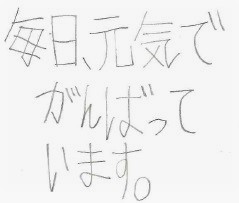 毎日、元気で
がんばって
います。